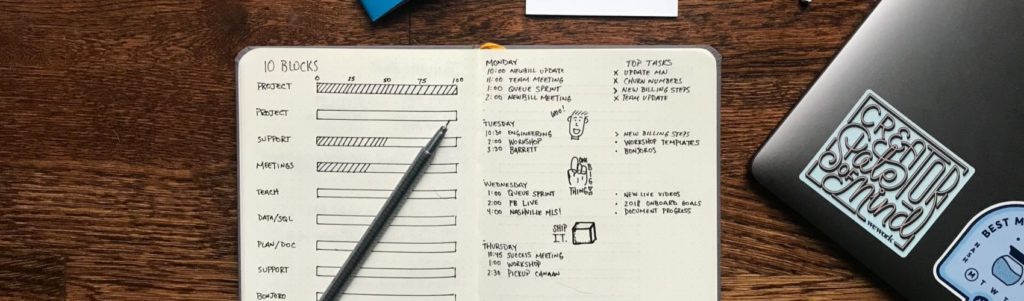 10 BLOCKS
0 25 50 75 100
PROJECT
PROJECT
SUPPORT
MEETINGS
TEACH
DATA/SQL
PLAN/DOC
SUPPORT
BONJORO
MONDAY
10:00 NEWBILL UPDATE
11:00 TEAM MEETING
1:00 QUEUE SPRINT
2:00 NEWBILL MEETING
TOP TASKS
X UPDATE MN
X CHURN NUMBERS
> NEW BILLING STEPS
X TEAM UPDATE
WOO!
TUESDAY
10:30 ENGINEERING
2:00 WORKSHOP
3:30 BARRETT
> NEW BILLING STEPS
• WORKSHOP TEMPLATES
• BONJOROS
BIG
THINGS
WEDNESDAY
1:00 QUEUE SPRINT
2:00 FB LIVE
4:00 NASHVILLE MLS!
• NEW LIVE VIDEOS
• 2018 ONBOARD GOALS
• DOCUMENT PROGRESS
SHIP
I.T.
THURSDAY
10:45 SUCCESS MEETING
1:00 WORKSHOP
2:30 PICKUP CANAAN
CREATOR
State
OF
Mind
wework
BEST M
M T W T